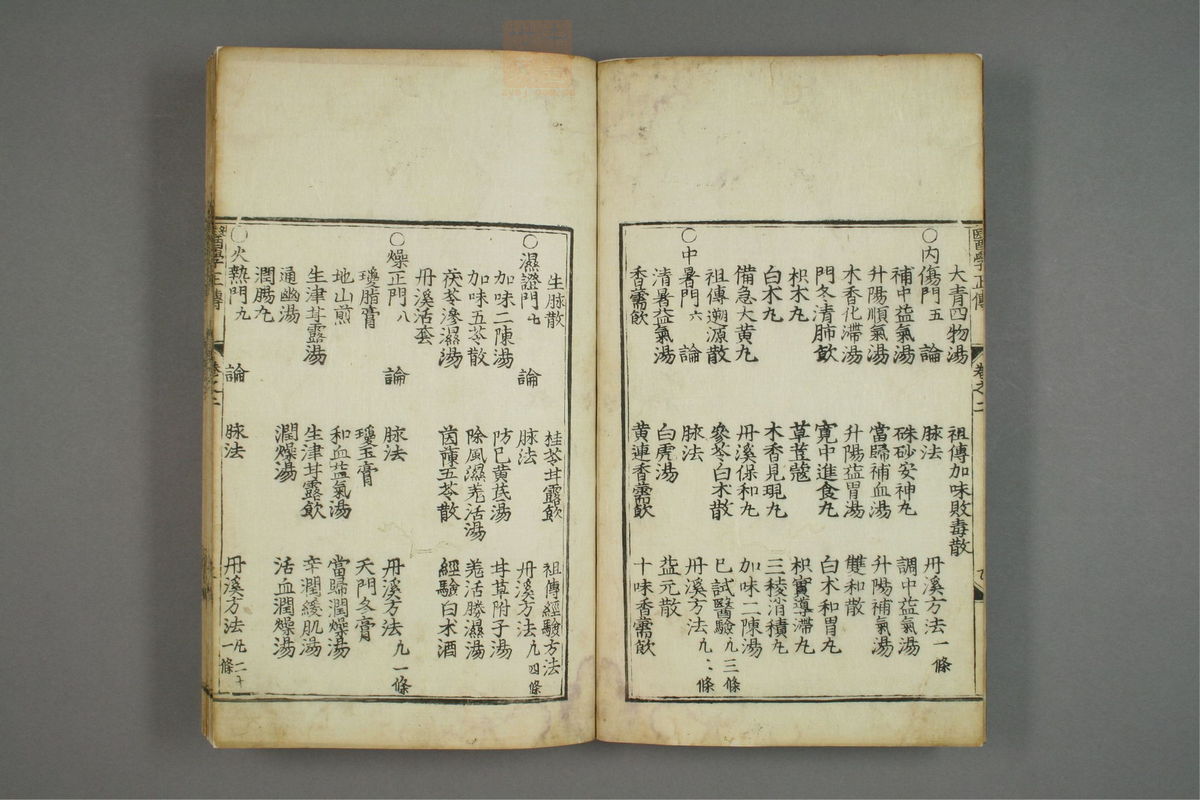 醫學正傳 卷之二
大青四物湯 祖傳加味敗毒散
○內傷門五 論 脉法 丹溪方法一條
補中益氣湯 硃砂安神丸 調中益氣湯
升陽順氣湯 當歸補血湯 升陽補氣湯
木香化滯湯 升陽益胃湯 雙和散
門冬清肺飲 寬中進食丸 白朮和胃丸
枳朮丸 草荳蔲 枳實導滯丸
白朮丸 木香見現丸 三稜消積丸
備急大黃丸 丹溪保和丸 加味二陳湯
祖傳遡源散 參苓白朮散 已試醫驗凡三條
○中暑門六 論 脉法 丹溪方法凡二條
清暑益氣湯 白虎湯 益元散
香薷飲 黃連香薷飲 十味香薷飲
生脉散 桂苓甘露飲 祖傳經驗方法
○濕證門七 論 脉法 丹溪方法凡四條
加味二陳湯 防已黃芪湯 甘草附子湯
加味五苓散 除風濕羌活湯 羌活勝濕湯
茯苓滲濕湯 茵蔯五苓散 經驗白朮酒
丹溪活套
○燥正門八 論 脉法 丹溪方法凡一條
瓊脂膏 瓊玉膏 天門冬膏
地山煎 和血益氣湯 當歸潤燥湯
生津甘露湯 生津甘露飲 辛潤緩肌湯
通幽湯 潤燥湯 活血潤燥湯
潤腸丸
○火熱門九 論 脉法 丹溪方法凡二十一條
醫學正傳 卷之二